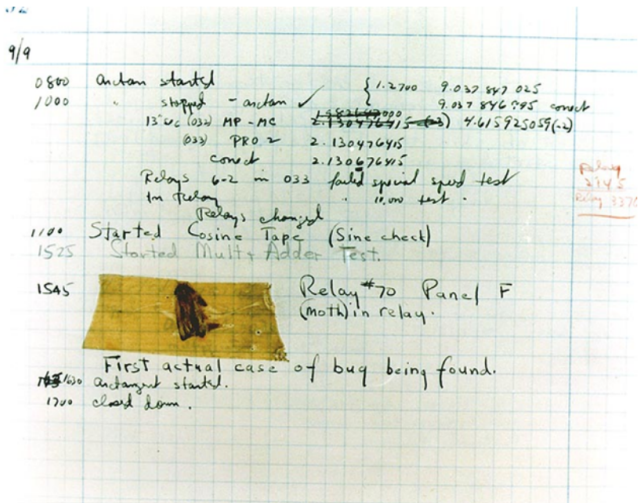 9/9
0800 arctan started { 1.2700 9.037 847 025
1000 " stopped - arctan ✓ 9.037 846 995 conect
13"uc (032) MP - MC 2.130476415 (-3) 4.615925059(-2)
(033) PRO 2 2.130476415
conect 2.130676415
Relays 6-2 in 033 failed special speed test
In Relay " 10,000 test .
Relay
2145
Relay 3370
Relays changed
1100 Started Cosine Tape (Sine check)
1525 Started Mult + Adder Test.
1545 Relay #70 Panel F
(moth) in relay.
First actual case of bug being found.
1630 arctangent started.
1700 closed down.